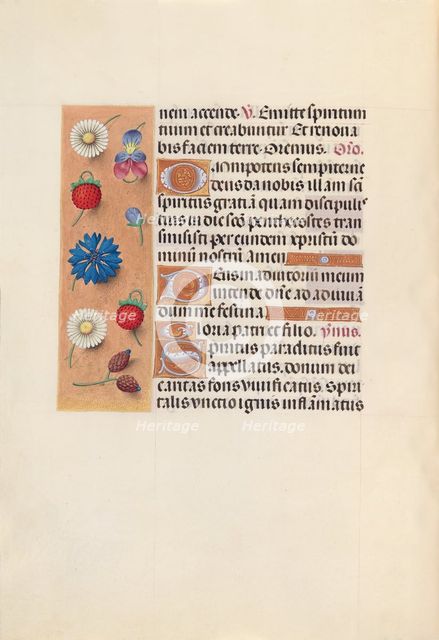 nem accende. V. Emitte spiritum
tuum et creabuntur. Et renoua
bis faciem terre. Oremus. Oro.
Omnipotens sempiterne
deus da nobis illam sc̄i
spiritus gratiā quam discipulis
tuis in die sc̄o penthecostes tran
smisisti per eundem xp̄istū do
minū nostrū amen.
Deus in adiutoriū meum
intende Dn̄e ad adiuuā
dum me festina.
Gloria patri et filio. ymnus.
Spiritus paraclitus fuit
appellatus. donum dei
caritas fons viuificatus. Spiri
talis vnctio ignis inflāmatus
Heritage